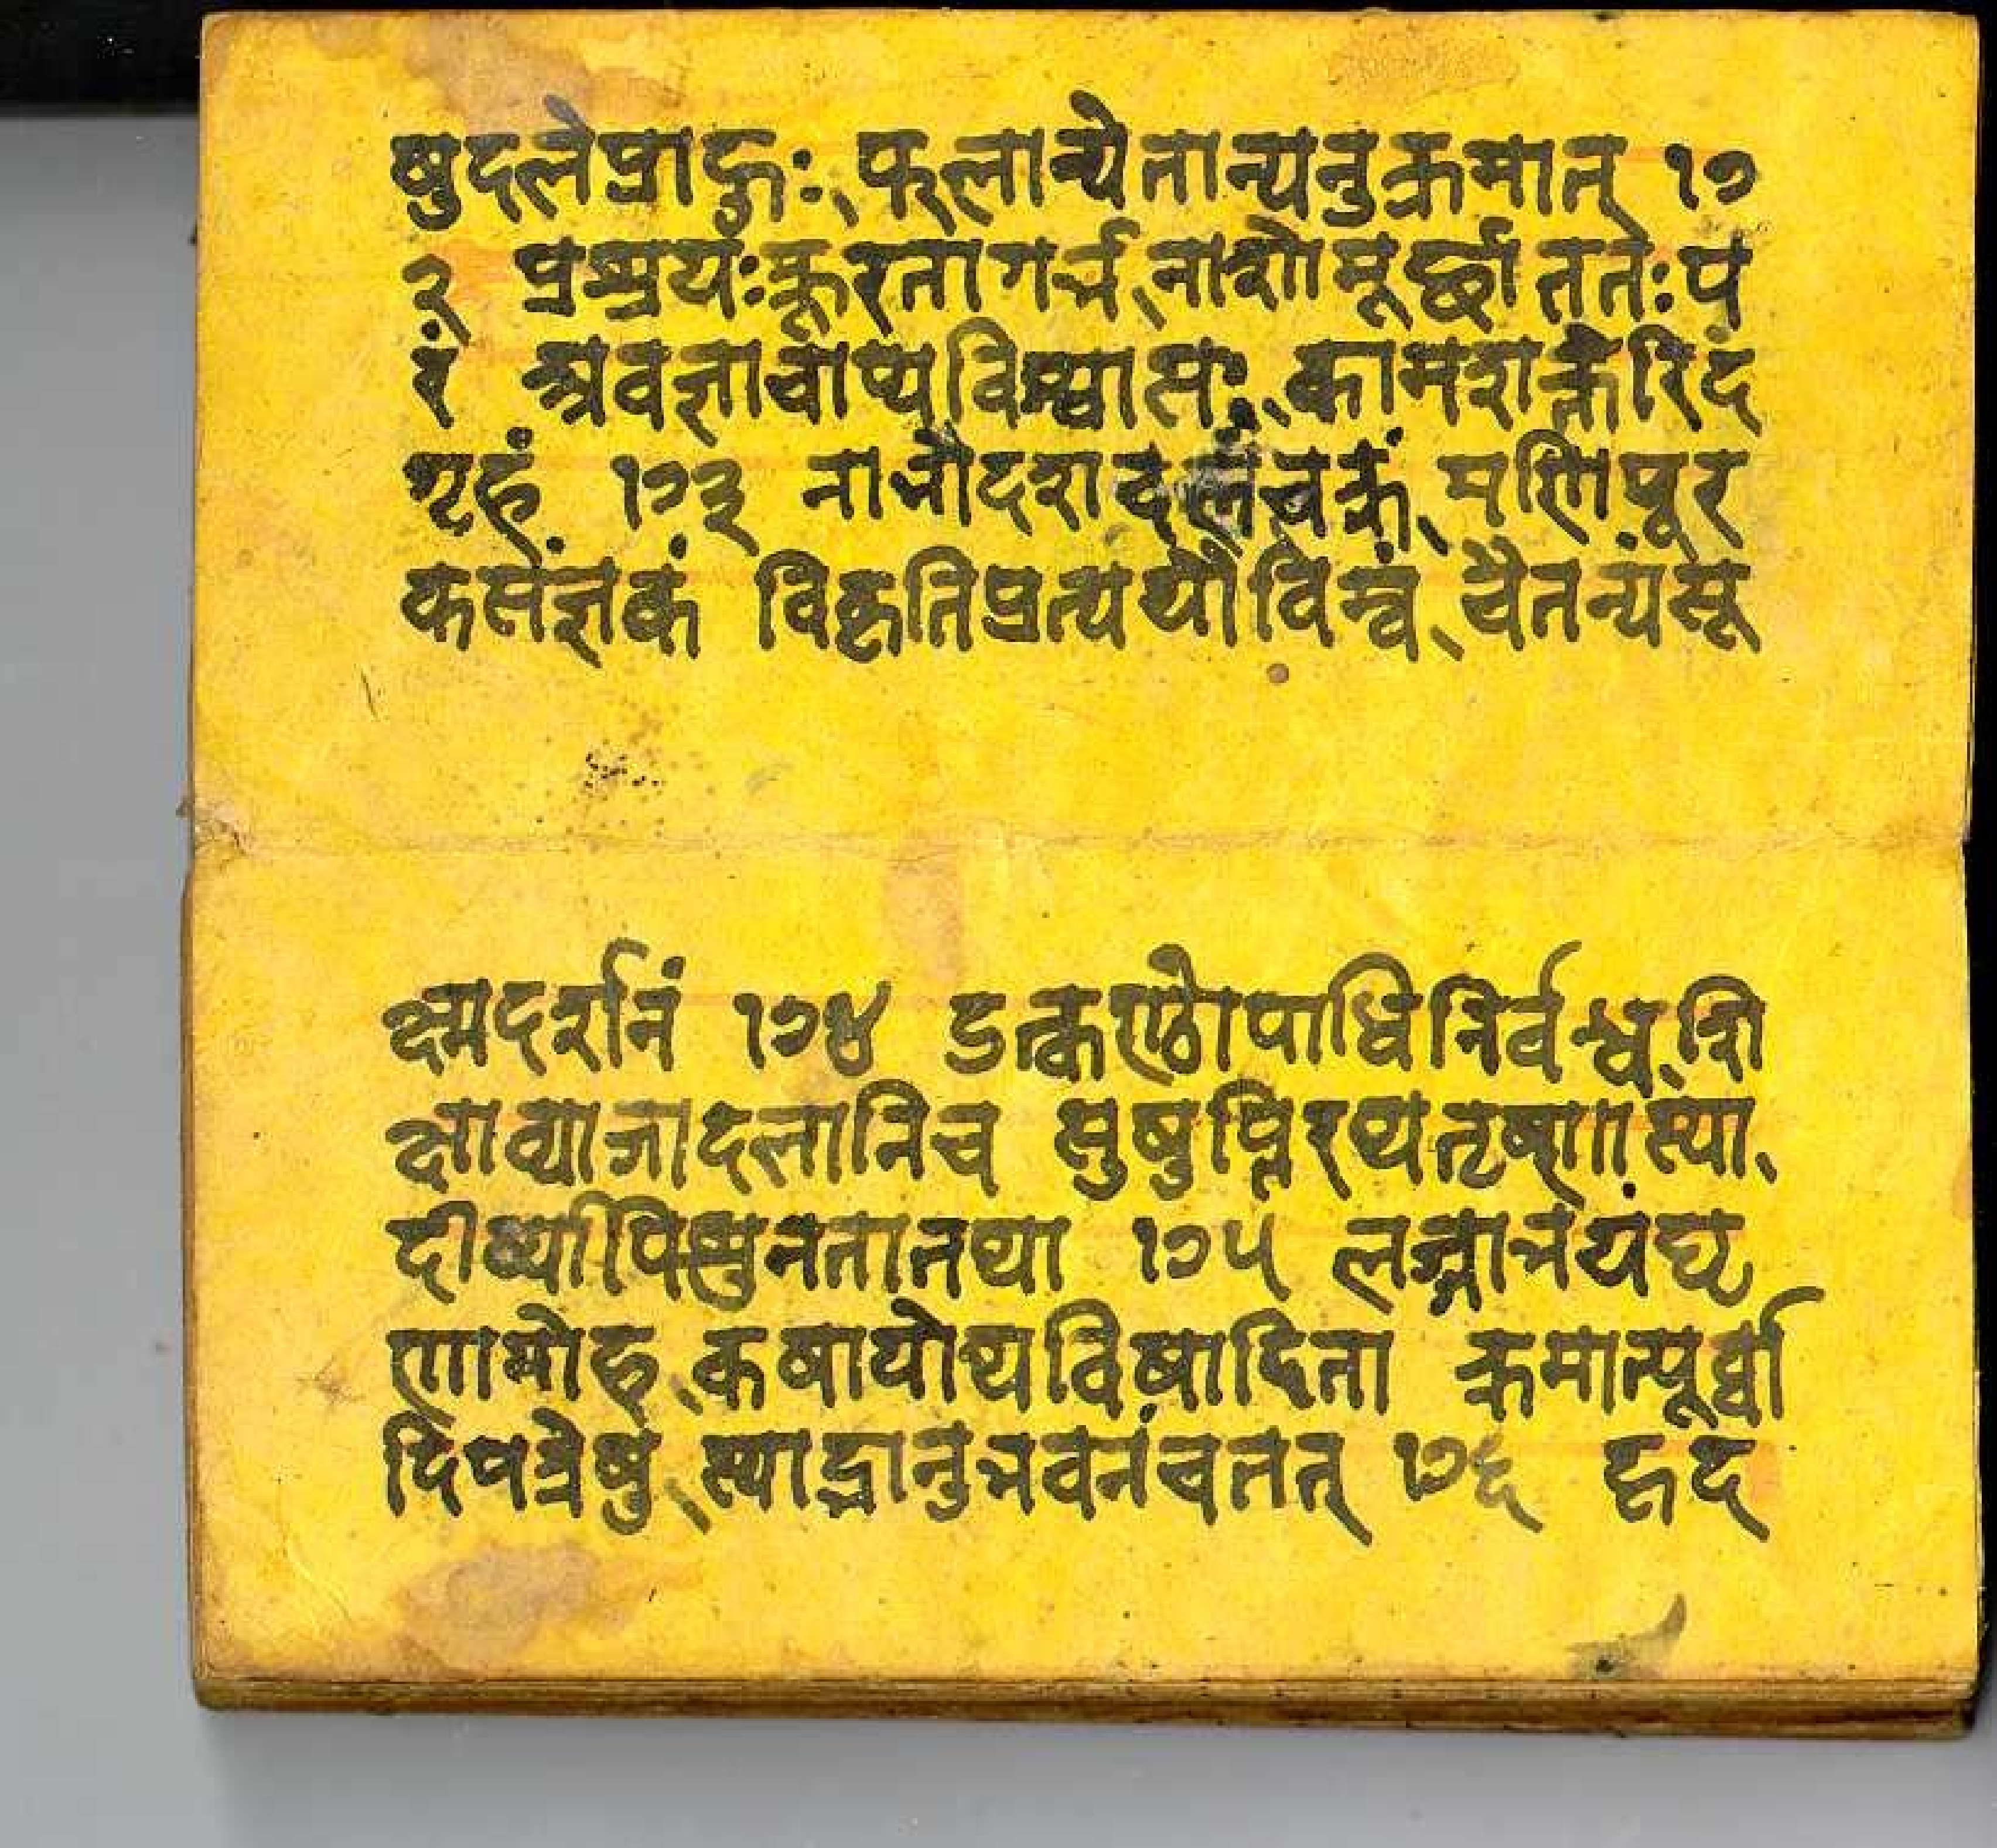 षुदलेप्राहुः फलान्येतान्यनुक्रमात् १७
२ प्रश्रयःक्रूरतागर्व्व नाशोमूर्छाततःप
रं अवज्ञाचाप्यविश्वासः कामशक्तेरिदं
गृहं १७३ नाभौदशदलंचक्रं मणिपूर
कसंज्ञकं विकृतिप्रत्यर्थोविम्वं चैतन्यंसू
क्ष्मदर्शनं १७४
क्षाव्याजादलानिच सुषुप्तिरथतृष्णास्या
दीर्ष्यापिसुनतातथा १७५ लज्जाभयंघृ
णामोह कषायोथविषादिता क्रमात्पूर्व्वा
दिपत्रेषु स्याद्भानुभवनंचतत् १७६ हृद